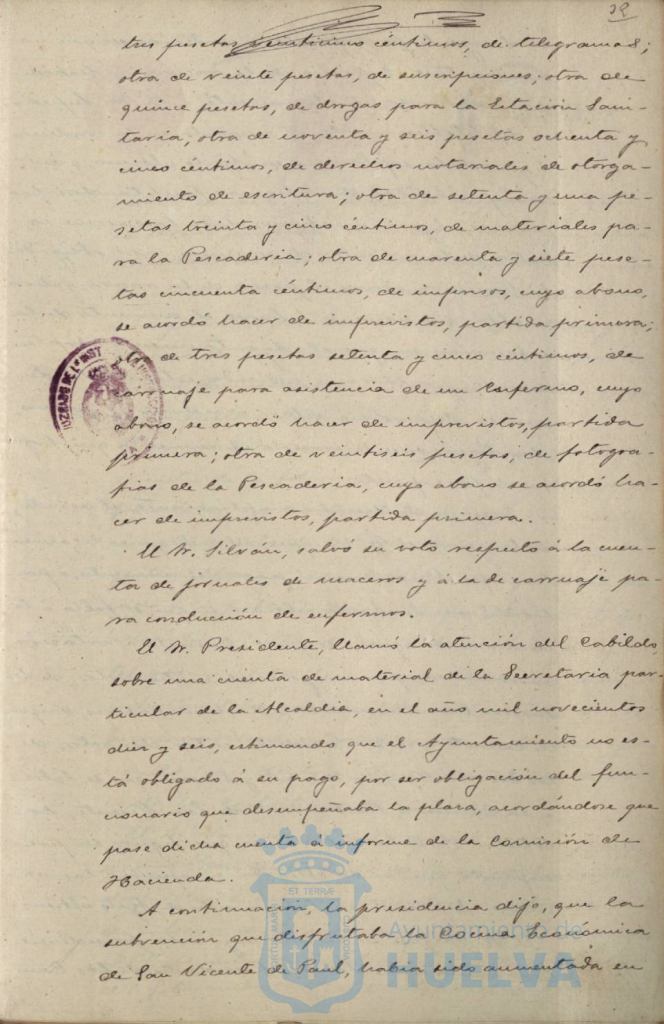 39
tres pesetas veinticinco céntimos, de telegramas;
otra de veinte pesetas, de suscripciones; otra de
quince pesetas, de drogas para la Estación Sani-
taria, otra de noventa y seis pesetas ochenta y
cinco céntimos, de derechos notariales de otorga-
miento de escritura; otra de setenta y una pe-
setas treinta y cinco céntimos, de materiales pa-
ra la Pescaderia; otra de cuarenta y siete pese-
tas cincuenta céntimos, de impresos, cuyo abono,
se acordó hacer de imprevistos, partida primera;
de tres pesetas setenta y cinco céntimos, de
carruaje para asistencia de un enfermo, cuyo
abono, se acordó hacer de imprevistos, partida
primera; otra de veintiseis pesetas, de fotogra-
fias de la Pescaderia, cuyo abono se acordó ha-
cer de imprevistos, partida primera.
El Sr. Silván, salvó su voto respecto á la cuen-
ta de jornales de maceros y á la de carruaje pa-
ra conducción de enfermos.
El Sr. Presidente, llamó la atención del Cabildo
sobre una cuenta de material de la Secretaria par-
ticular de la Alcaldia, en el año mil novecientos
diez y seis, estimando que el Ayuntamiento no es-
tá obligado á su pago, por ser obligación del fun-
cionario que desempeñaba la plaza, acordándose que
pase dicha cuenta á informe de la Comisión de
Hacienda.
A continuación, la presidencia dijo, que la
subvención que disfrutaba la Cocina Económica
de San Vicente de Paul, habia sido aumentada en
JUZGADO DE 1ª INST
ET TERRÆ
Ayuntamiento de
HUELVA